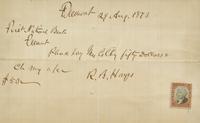 Fremont 29 Aug. 1873
First National Bank
Fremont
Please pay Mr Colby fifty dollars
Ch my a/c
$50
R. B. Hayes